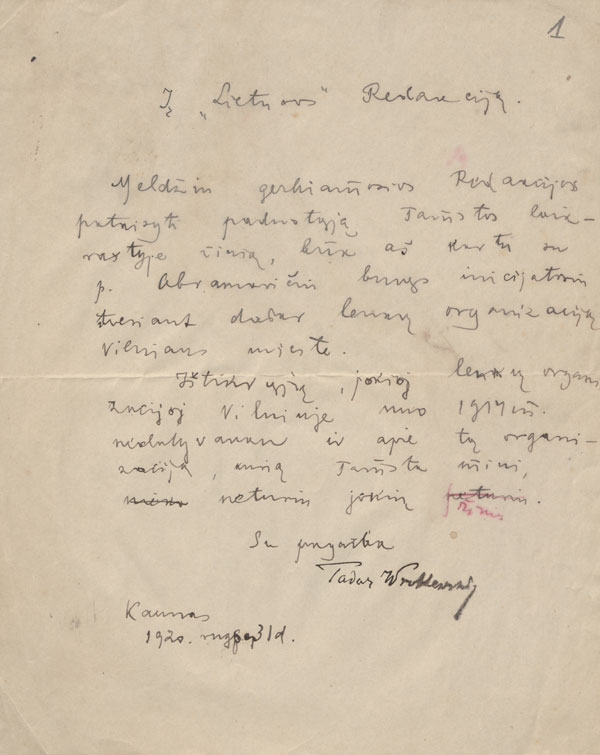 1
Į „Lietuvos" Redakciją.
Meldžiu gerbiamosios Redakcijos
pataisyti paduotąją Tamstos laik-
raštyje žinią, būk aš kartu su
p. Abramavičiu buvęs iniciatorium
tveriant dabar lenkų organizaciją
Vilniaus mieste.
Ištikrųjų, jokioj lenkų organi
zacijoj Vilniuje nuo 1914 m.
nedalyvavau ir apie tą organi-
zaciją, kurią Tamsta mini,
neturiu jokių
žinių.
Su pagarba
Tadas Wróblewski
Kaunas
1920. rugp. 31 d.